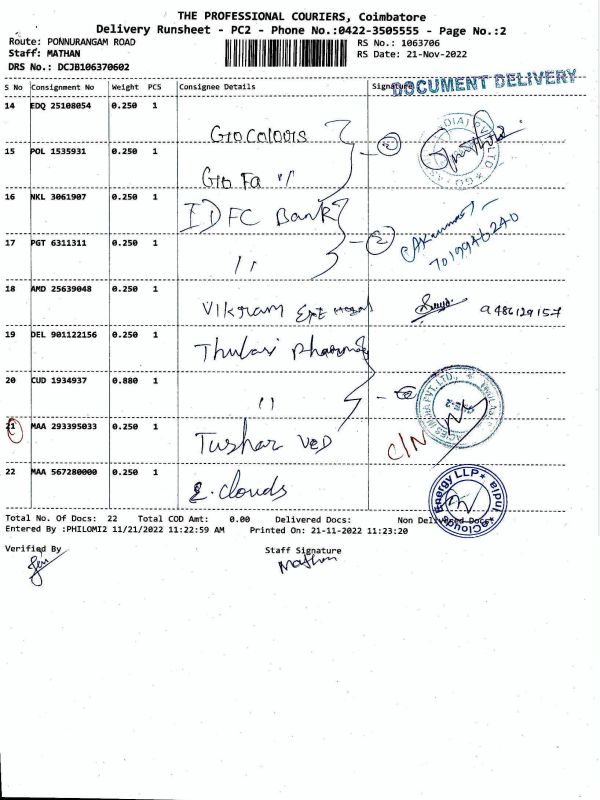 THE PROFESSIONAL COURIERS, Coimbatore
Delivery Runsheet - PC2 - Phone No.:0422-3505555 - Page No.:2
Route: PONNURANGAM ROAD
RS No.: 1063706
Staff: MATHAN
RS Date: 21-Nov-2022
DRS No.: DCJB106370602
DOCUMENT DELIVERY
S No Consignment No Weight PCS Consignee Details Signature
14 EDQ 25108054 0.250 1
Gro Colours
15 POL 1535931 0.250 1
Gro Fa "
16 NKL 3061907 0.250 1
IDFC Bank
17 PGT 6311311 0.250 1
"
7019946240
18 AMD 25639048 0.250 1
Vikram Eye Hospl
9486129157
19 DEL 901122156 0.250 1
Thulasi Pharmacy
20 CUD 1934937 0.880 1
"
21 MAA 293395033 0.250 1
Tushar VED
C/N
22 MAA 567280000 0.250 1
E. Clouds
Energy LLP * India
Total No. Of Docs: 22 Total COD Amt: 0.00 Delivered Docs: Non Delivered Docs:
Entered By :PHILOMI2 11/21/2022 11:22:59 AM Printed On: 21-11-2022 11:23:20
Verified By
Staff Signature
Mathan